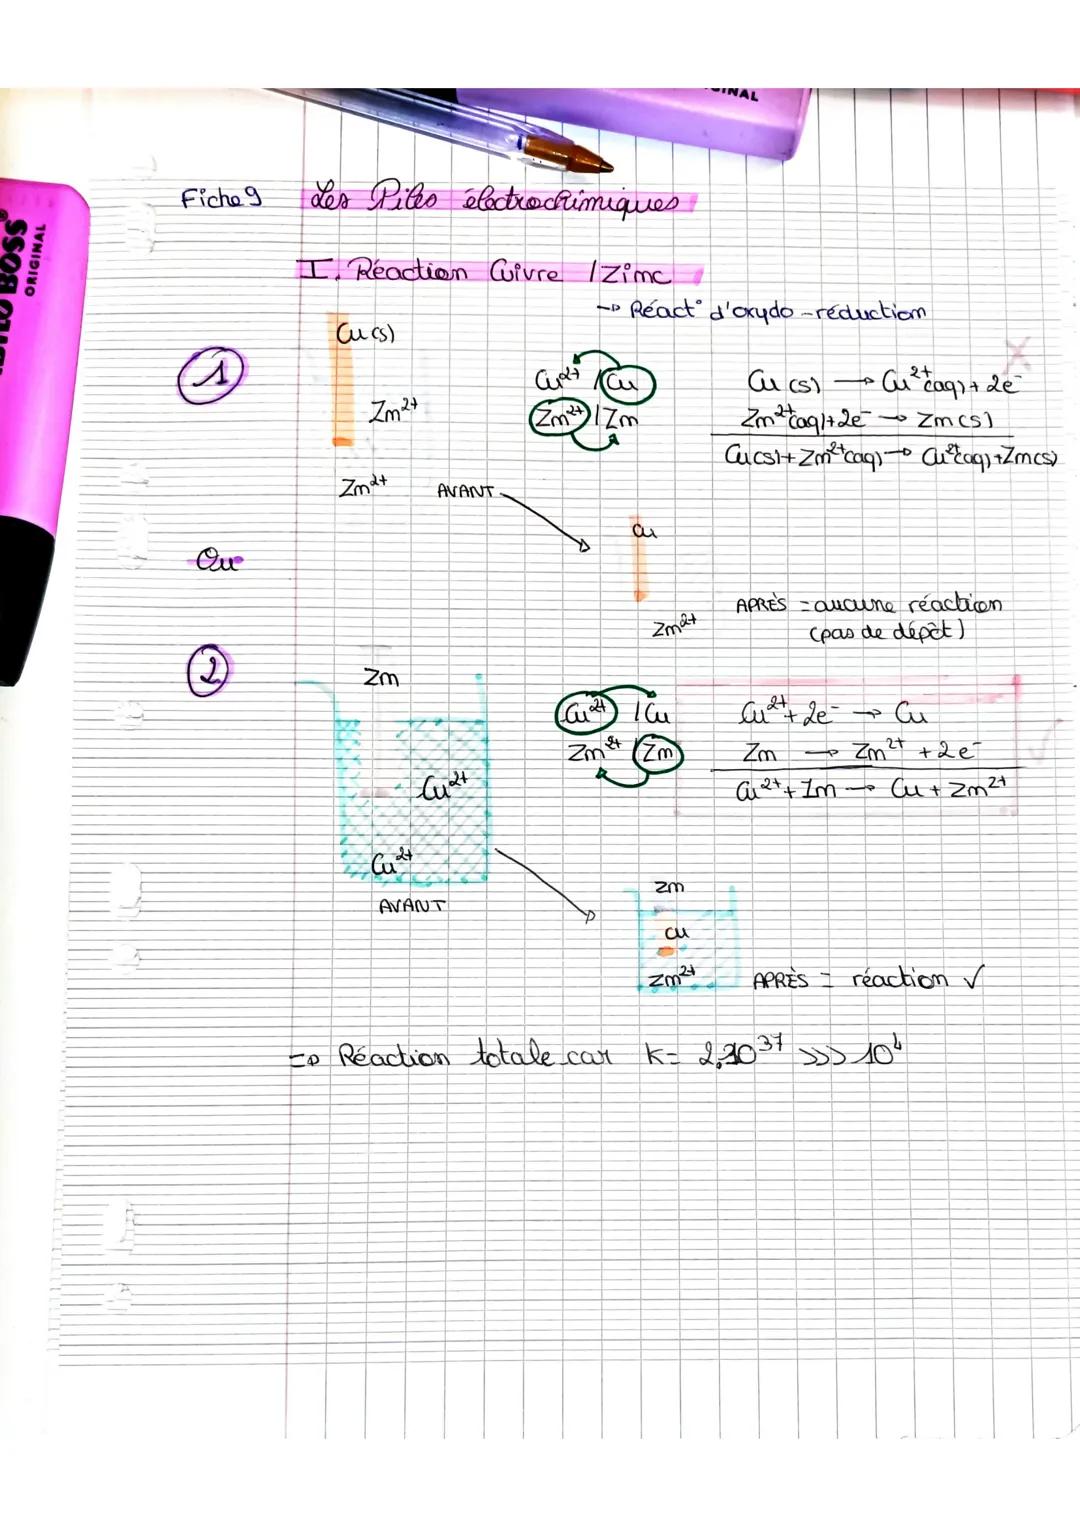 INAL
BOSS
ORIGINAL
Fiche 9 Les Piles électrochimiques
I. Réaction Cuivre / Zinc
→ Réact° d'oxydo-réduction
Cu(s)
①
Zn²⁺
Cu²⁺ / Cu
Zn²⁺ / Zn
Cu(s) → Cu²⁺(aq) + 2e⁻
Zn²⁺(aq) + 2e⁻ → Zn(s)
Cu(s) + Zn²⁺(aq) → Cu²⁺(aq) + Zn(s)
Zn²⁺ AVANT
Cu
Ou
Zn²⁺
APRÈS = aucune réaction
(pas de dépôt)
②
Zn
Cu²⁺ / Cu
Zn²⁺ / Zn
Cu²⁺ + 2e⁻ → Cu
Zn → Zn²⁺ + 2e⁻
Cu²⁺ + Zn → Cu + Zn²⁺
Cu²⁺
Cu²⁺
AVANT
Zn
Cu
Zn²⁺
APRÈS = réaction ✓
⇒ Réaction totale car K = 2,10³⁷ >>> 10⁴